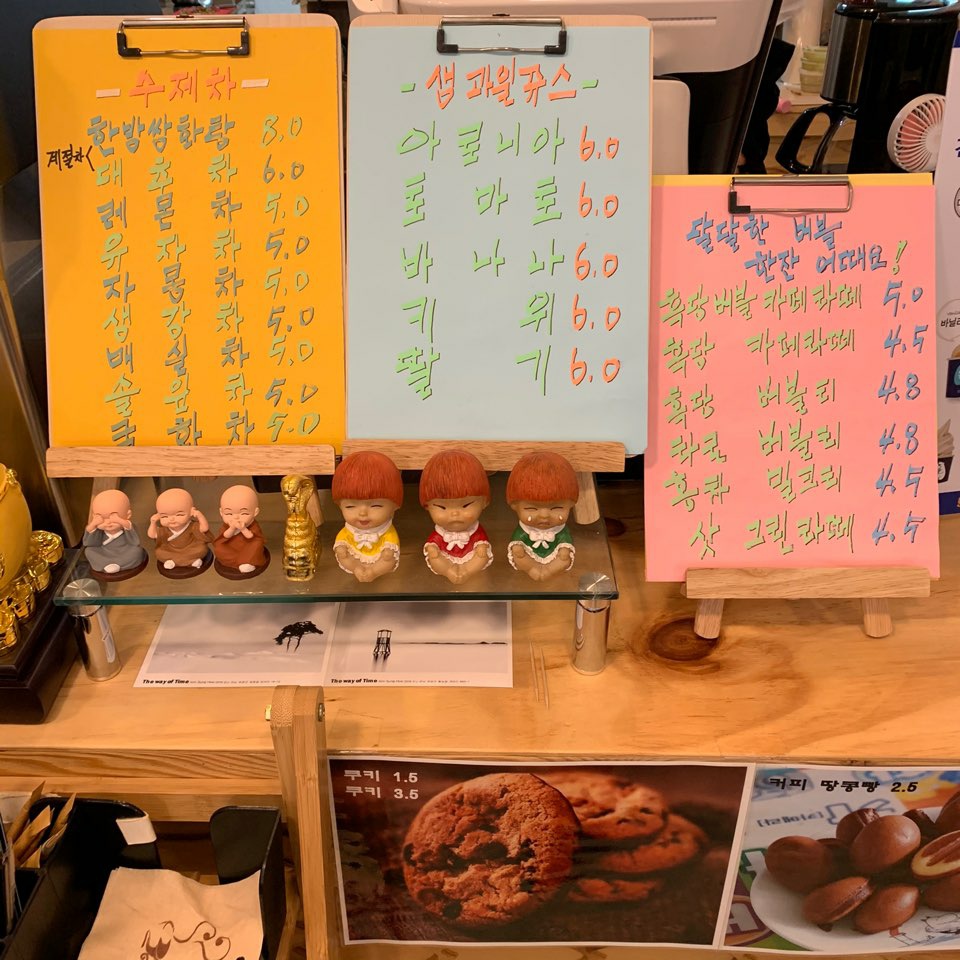 수제차
한방쌍화탕 8.0
계절차<
대추차 6.0
레몬차 5.0
유자차 5.0
자몽차 5.0
생강차 5.0
매실차 5.0
솔잎차 5.0
국화차 5.0
생과일쥬스
아로니아 6.0
토마토 6.0
바나나 6.0
키위 6.0
딸기 6.0
달달한 버블
한잔 어때요!
흑당버블카페라떼 5.0
흑당 카페라떼 4.5
흑당 버블티 4.8
타로 버블티 4.8
홍차 밀크티 4.5
샷 그린라떼 4.5
The way of Time
The way of Time
쿠키 1.5
쿠키 3.5
커피 땅콩빵 2.5
바닐라